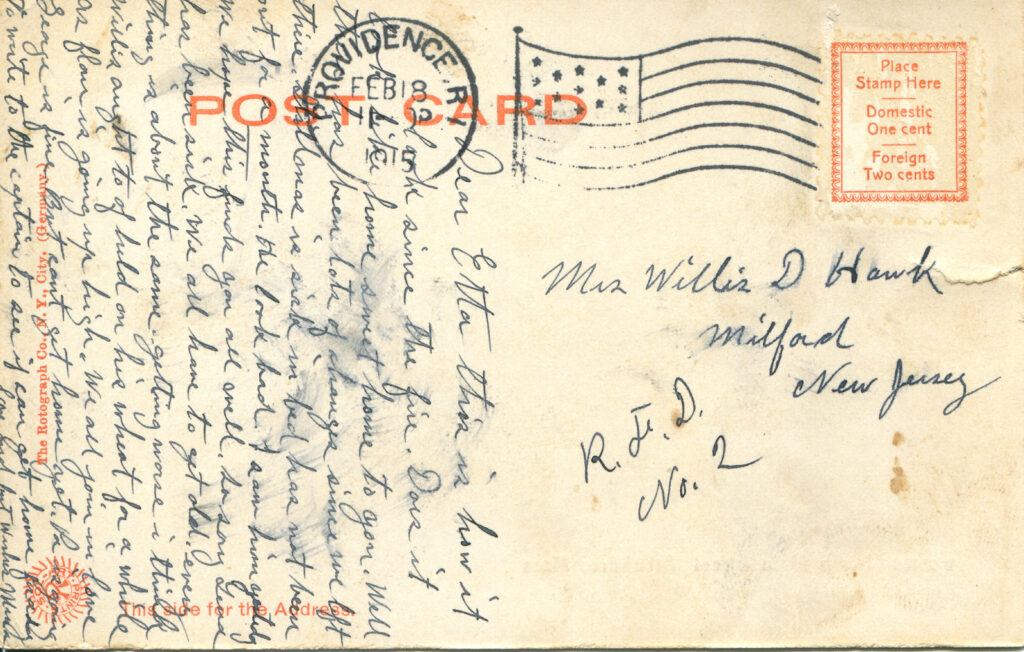 POST CARD
PROVIDENCE, R.I.
FEB 18
7
1915
Place
Stamp Here
Domestic
One cent
Foreign
Two cents
Mrs Willis D Hawk
Milford
New Jersey
R. F. D.
No. 2
Dear Etta this is how it
looks since the fire. Does it
look like home sweet home to you. Well
there has been lots of changes since we left
there. Thomas is sick in bed, has not been
out for a month. He looks bad. I saw him yesterday
we hope this finds you all well. so sorry Gene
has been sick. We all have to get old. every
thing is about the same getting worse i think
Willis ought to of held on his wheat for a while
as flour is going up high. We all join in love
George is fine but cant get home yet. he is going
to write to the captain to see if can get home
love but
The Rotograph Co., N. Y., City. (Germany.)
This side for the Address.